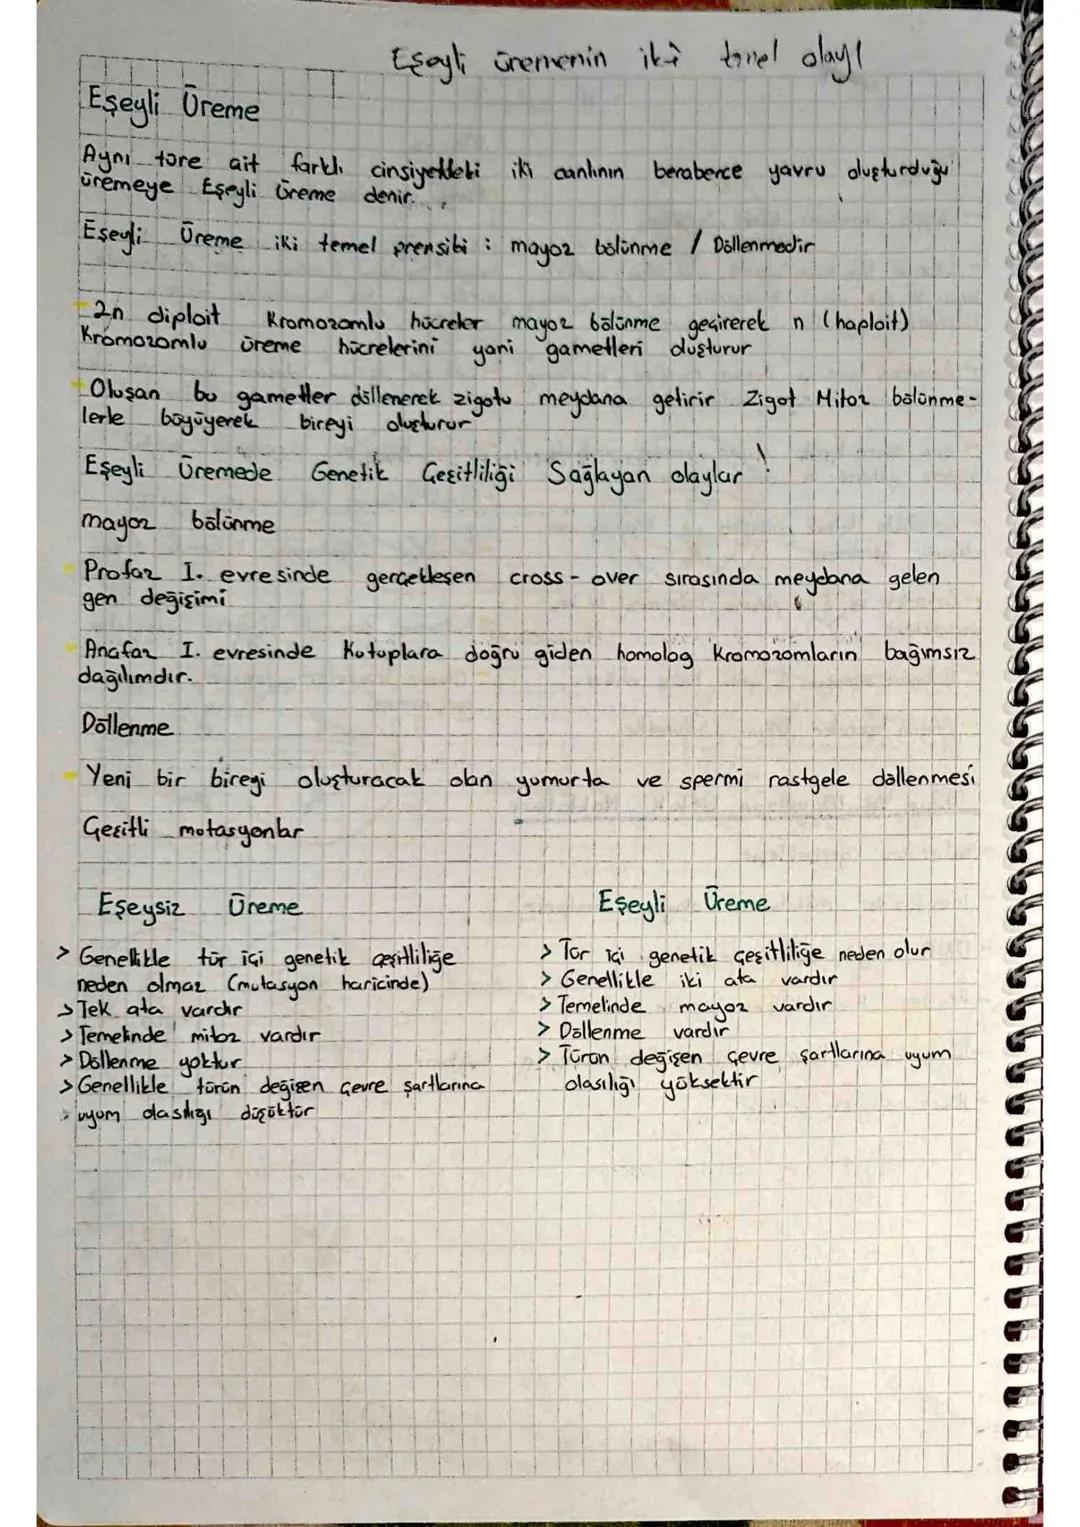 Eşeyli üremenin iki temel olayı
Eşeyli Üreme
Aynı türe ait farklı cinsiyetteki iki canlının beraberce yavru oluşturduğu
üremeye Eşeyli Üreme denir.
Eşeyli Üreme iki temel prensibi : mayoz bölünme / Döllenmedir
-2n diploit Kromozomlu hücreler mayoz bölünme geçirerek n (haploit)
Kromozomlu üreme hücrelerini yani gametleri oluşturur
-Oluşan bu gametler döllenerek zigotu meydana getirir Zigot Mitoz bölünme-
lerle büyüyerek bireyi oluşturur
Eşeyli Üremede Genetik Çeşitliliği Sağlayan olaylar !
mayoz bölünme
- Profaz I. evresinde gerçekleşen cross - over sırasında meydana gelen
gen değişimi
- Anafaz I. evresinde Kutuplara doğru giden homolog Kromozomların bağımsız
dağılımdır.
Döllenme
- Yeni bir bireyi oluşturacak olan yumurta ve spermi rastgele döllenmesi
Çeşitli mutasyonlar
Eşeysiz Üreme
> Genellikle tür içi genetik çeşitliliğe
neden olmaz (mutasyon haricinde)
> Tek ata vardır
> Temelinde mitoz vardır
> Döllenme yoktur
> Genellikle türün değişen çevre şartlarına
uyum olasılığı düşüktür
Eşeyli Üreme
> Tür içi genetik çeşitliliğe neden olur
> Genellikle iki ata vardır
> Temelinde mayoz vardır
> Döllenme vardır
> Türün değişen çevre şartlarına uyum
olasılığı yüksektir